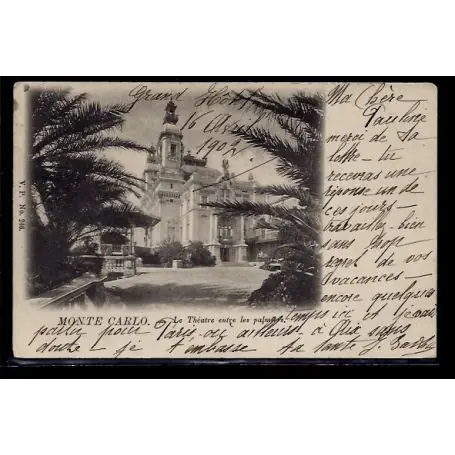 Grand Hôtel
16 Avril
1902
Ma Chère
Pauline
merci de ta
lettre - tu
recevras une
réponse un de
ces jours -
travaille bien
sans trop
regret de vos
vacances -
encore quelques
temps ici et je
partir pour Paris, ou ailleurs à Aix sans
doute - je t'embrasse ta tante J.
V. P. No. 246.
MONTE CARLO. - Le Théatre entre les palmiers.